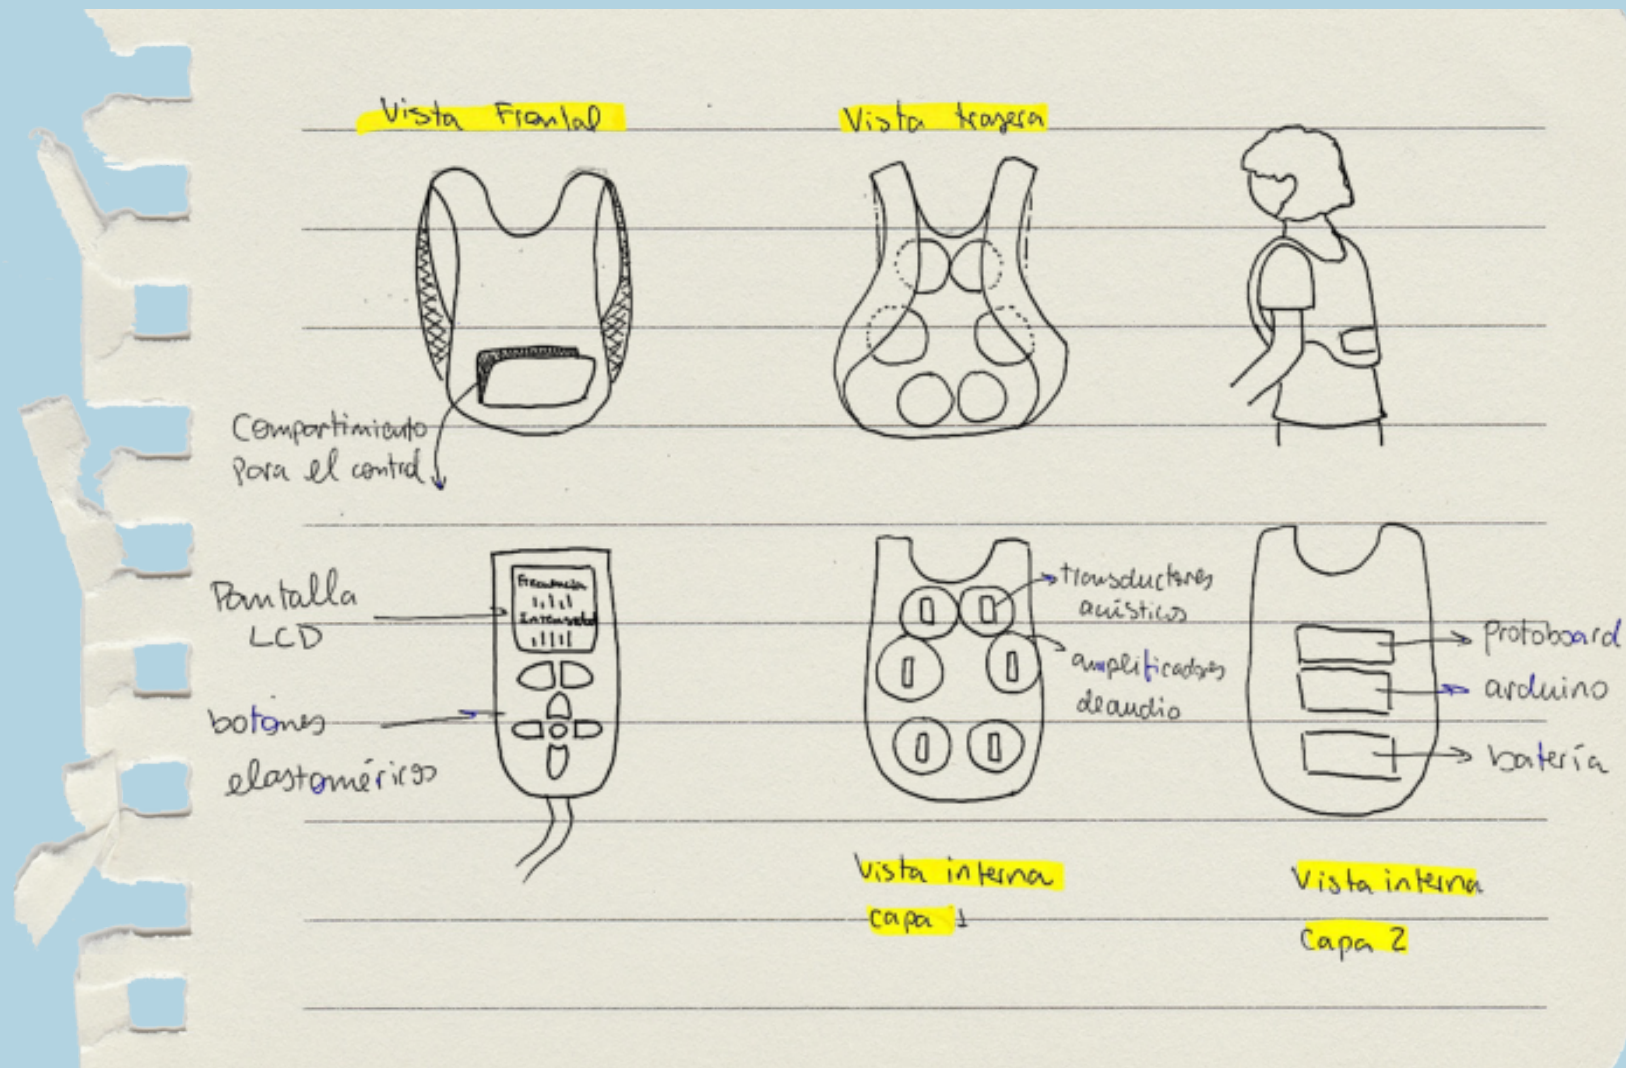 Vista Frontal
Vista trasera
Compartimiento
para el control
Pantalla
LCD
Frecuencia
Intensidad
botones
elastoméricos
transductores
acústicos
amplificadores
de audio
protoboard
arduino
batería
Vista interna
capa 1
Vista interna
Capa 2